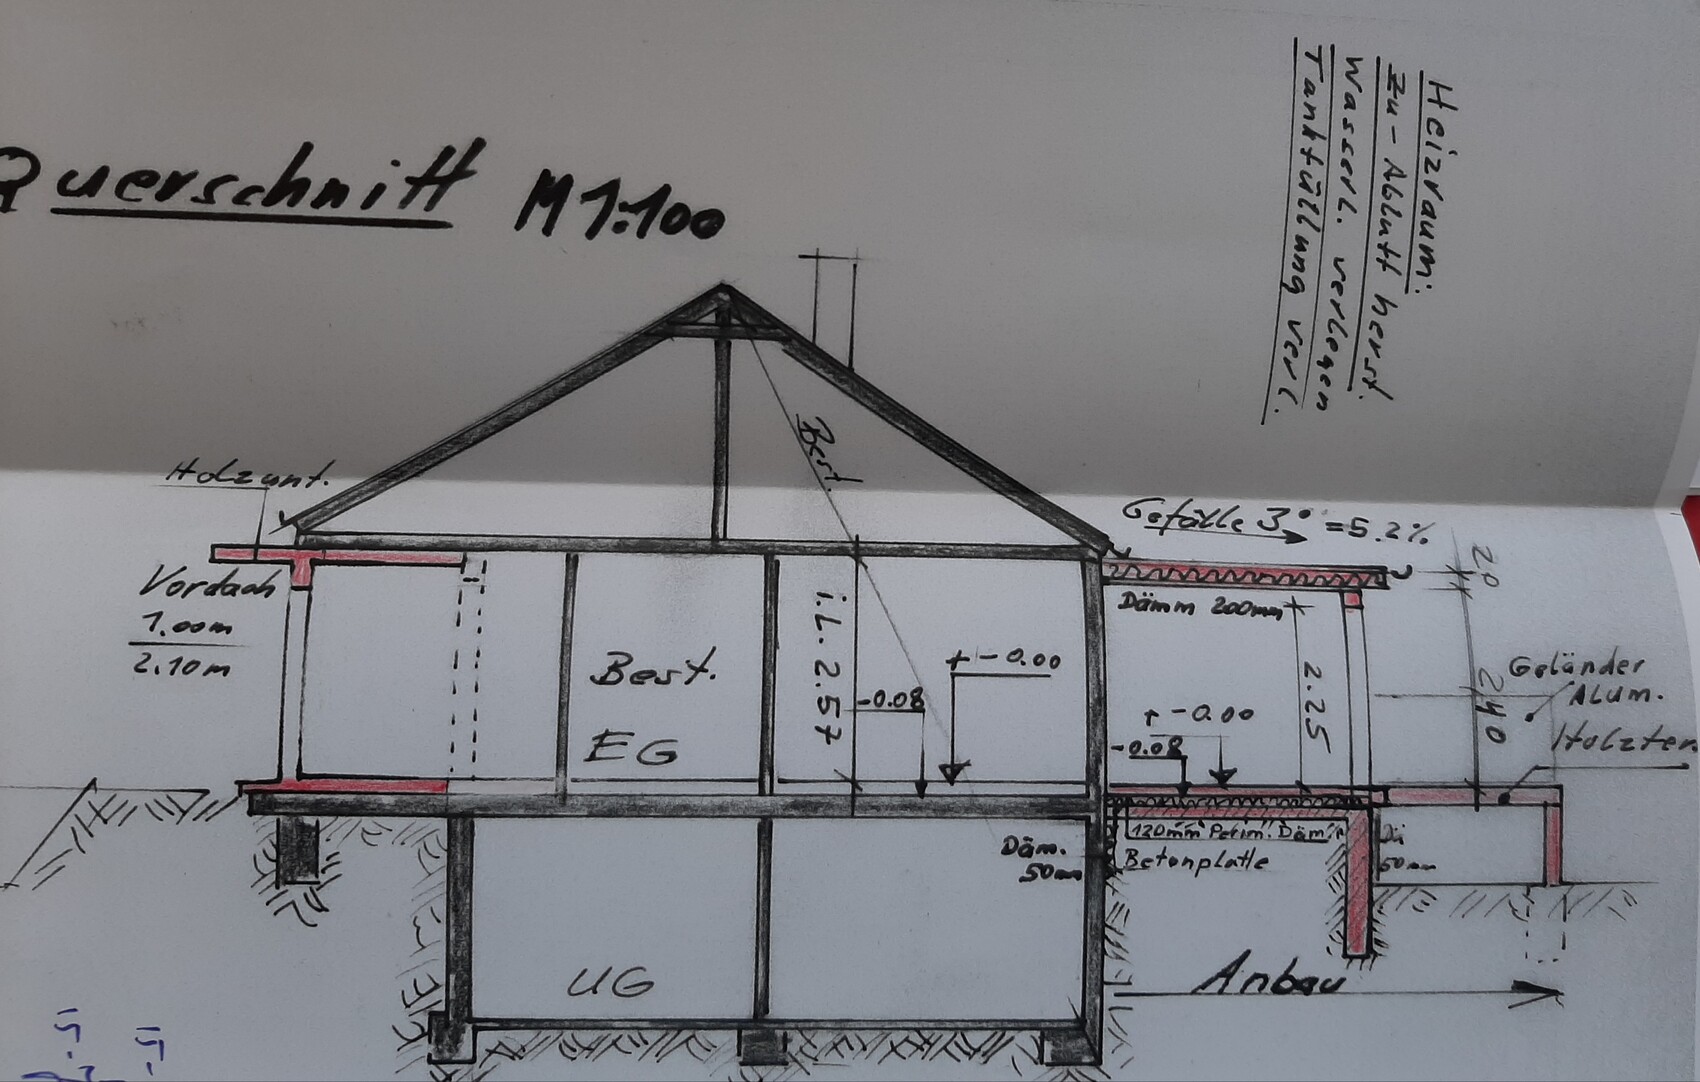 Querschnitt M 1:100
Heizraum:
Zu-Abluft herst.
Wasserl. verlegen
Tankfüllung verl.
Best.
Holzunt.
Gefälle 3° = 5.2%
Vordach
1.00m
2.10m
Dämm 200mm
20
i.L. 2.57
Best.
EG
+-0.00
-0.08
+-0.00
-0.08
2.25
240
Geländer
Alum.
Holzter.
Däm.
50mm
120mm Perim. Däm.
Betonplatte
Dä
50mm
UG
Anbau